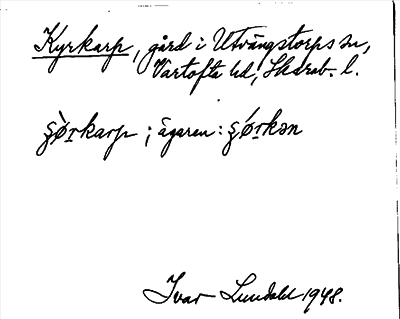 Kyrkarp, gård i Utvängstorps sn,
Vartofta hd, Skarab. l.
ʂø̀rkarp ; ägaren: ʂǿrkən
Ivar Lundahl 1948.